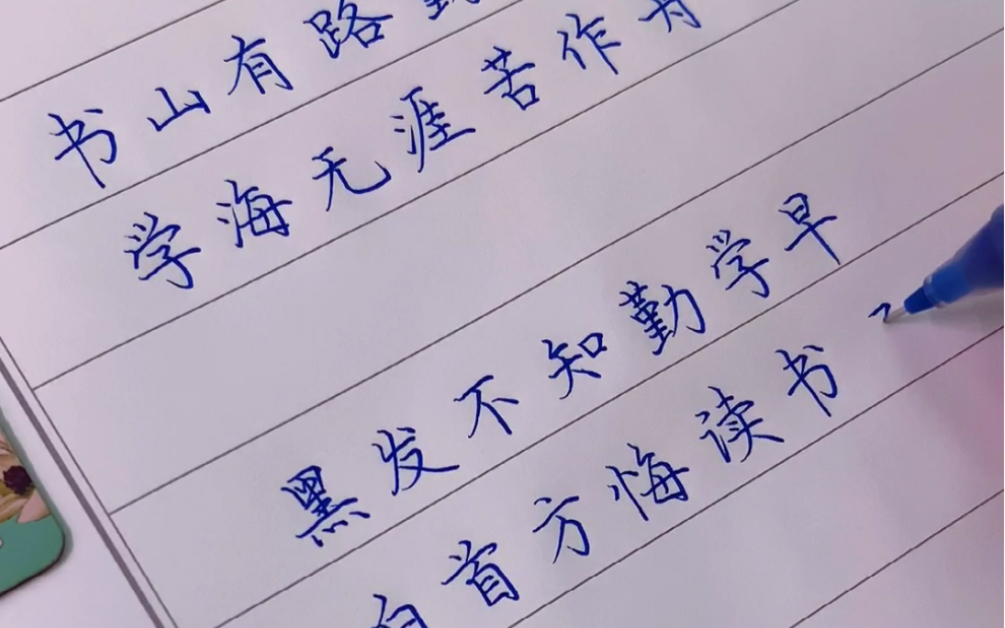 书山有路勤
学海无涯苦作
黑发不知勤学早
白首方悔读书